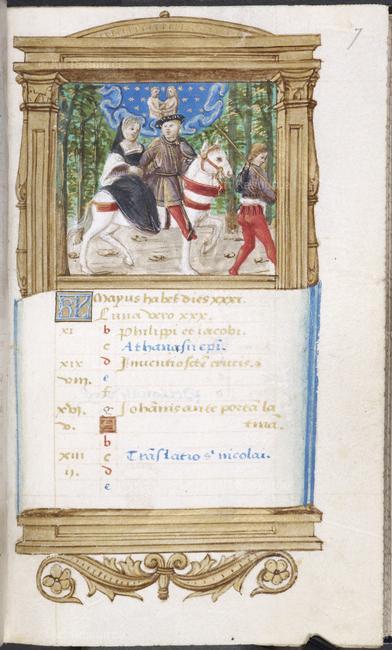 7
Mayus habet dies xxxi.
Luna vero xxx.
xi b Philippi et iacobi.
c Athanasii epi.
xix d Inuentio scte crucis.
viii. e
f
xvi. g Iohannis ante portā la
v. A tinā.
b
xiii c Trāslatio s' nicolai.
ii. d
e